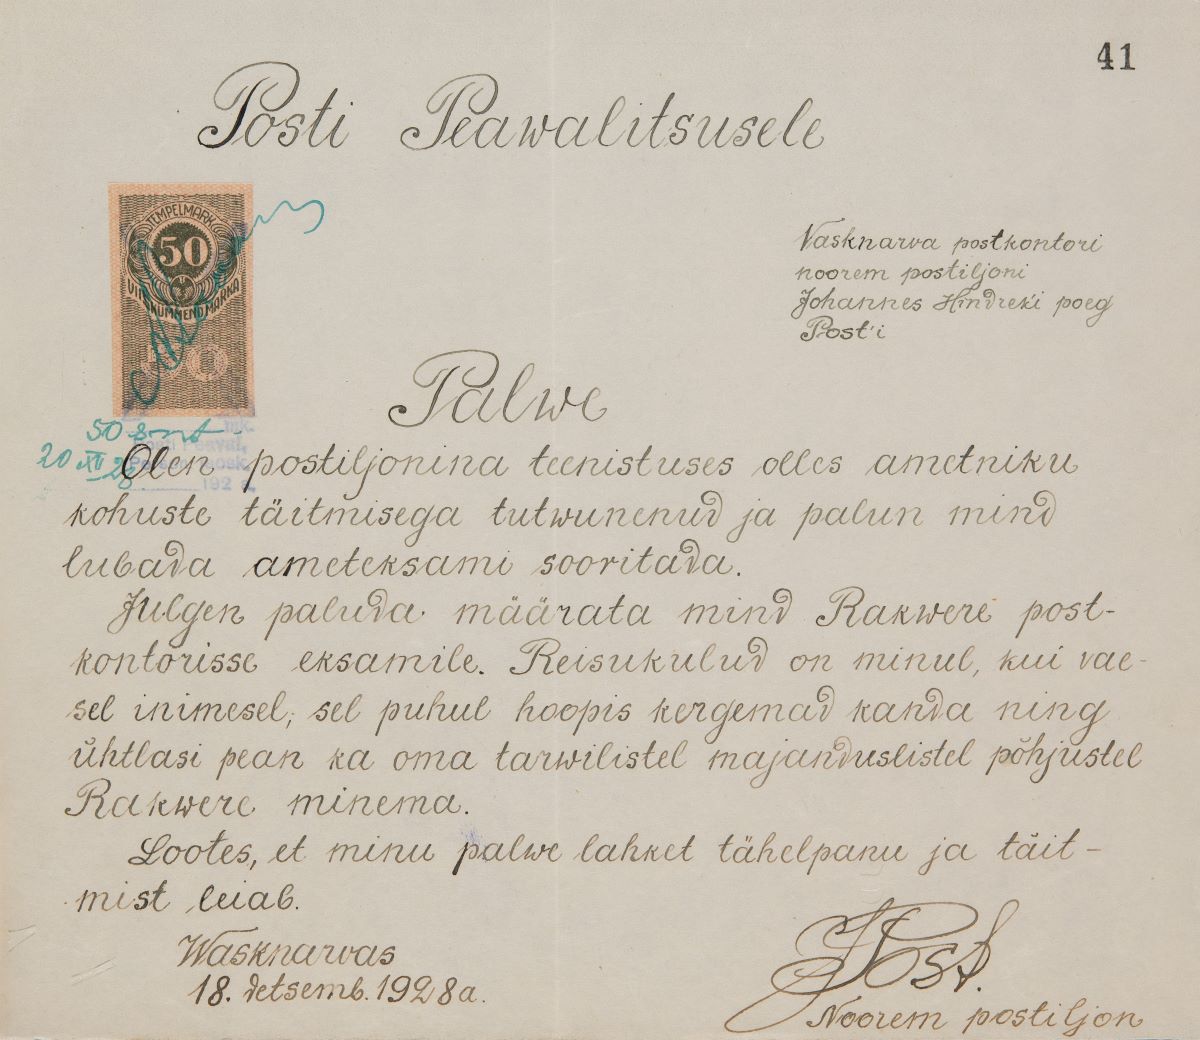 41
Posti Peawalitsusele
TEMPELMARK
50
VIISKÜMMEND MARKA
50
Vasknarva postkontori
noorem postiljoni
Johannes Hindrek'i poeg
Post'i
Palwe
50 snt
20 XII 28
192 a.
Olen postiljonina teenistuses olles ametniku
kohuste täitmisega tutwunenud ja palun mind
lubada ameteksami sooritada.
Julgen paluda määrata mind Rakwere post-
kontorisse eksamile. Reisukulud on minul, kui vae-
sel inimesel, sel puhul hoopis kergemad kanda ning
ühtlasi pean ka oma tarwilistel majanduslistel põhjustel
Rakwere minema.
Lootes, et minu palwe lahket tähelpanu ja täit-
mist leiab.
Wasknarwas
18. detsemb. 1928 a.
J Post.
Noorem postiljon